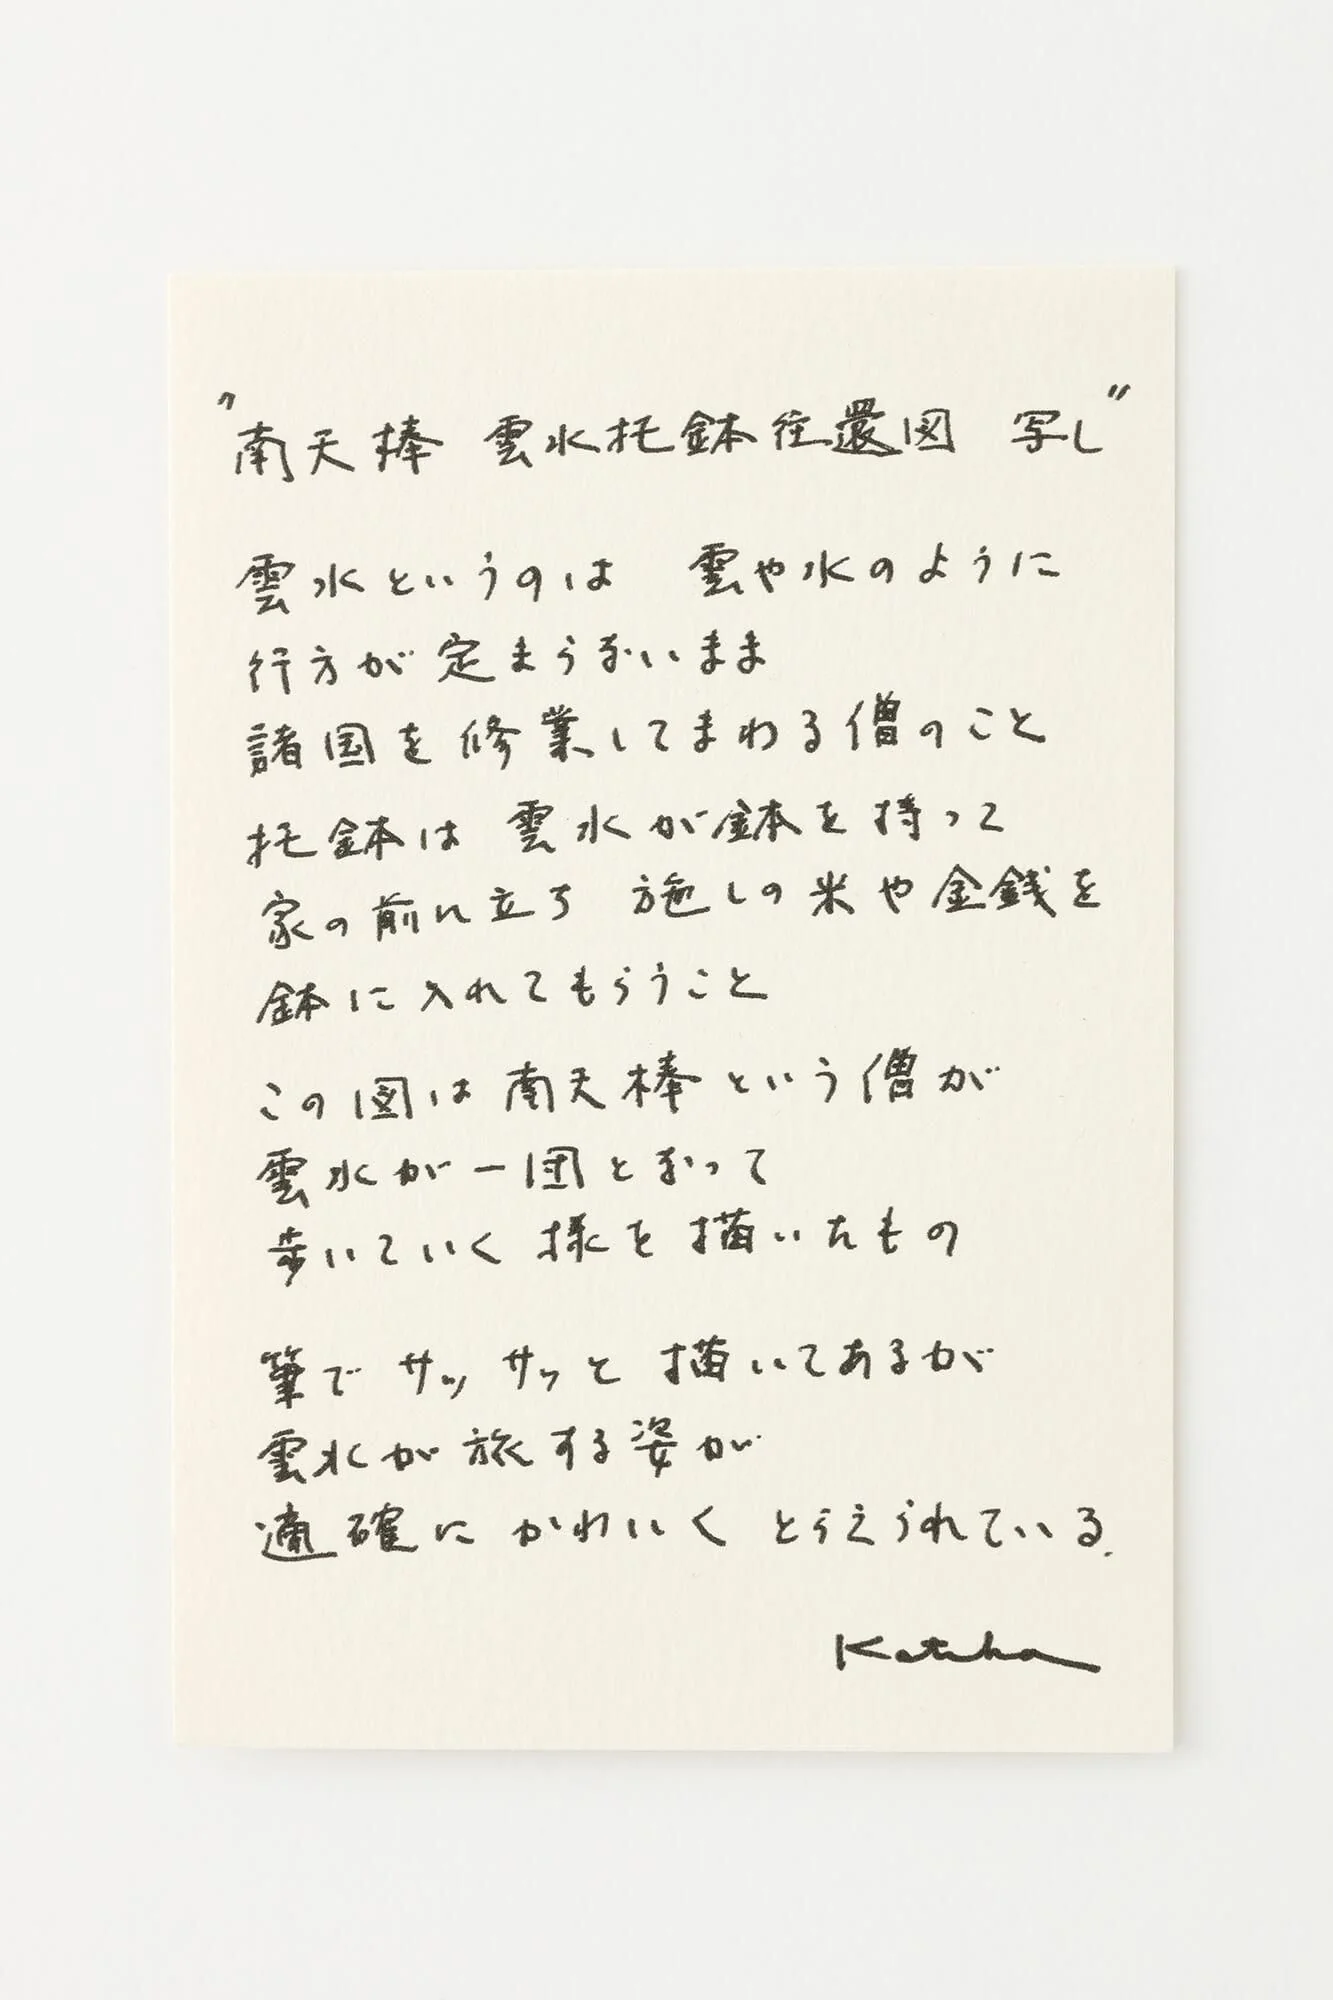 "南天棒 雲水托鉢往還図 写し"
雲水というのは 雲や水のように
行方が定まらないまま
諸国を修業してまわる僧のこと
托鉢は 雲水が鉢を持って
家の前に立ち 施しの米や金銭を
鉢に入れてもらうこと
この図は南天棒という僧が
雲水が一団となって
歩いていく様を描いたもの
筆でサッサッと描いてあるが
雲水が旅する姿が
適確にかわいくとらえられている.
Katsha